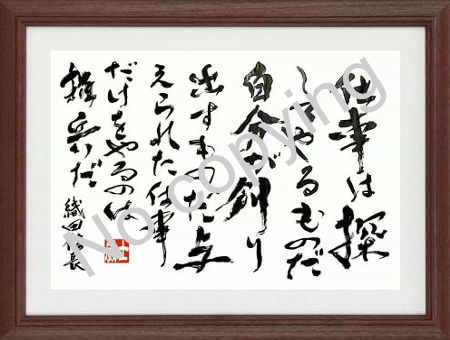 仕事は探
してやるものだ
自分が創り
出すものだ与
えられた仕事
だけをやるのは
雑兵だ
織田信長
No copying